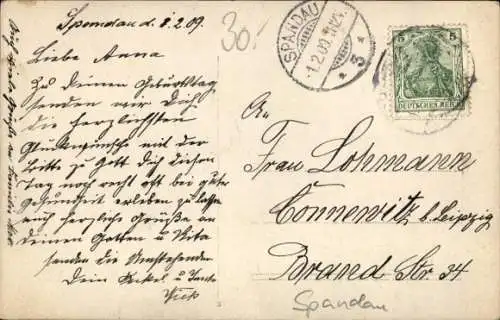 Spandau d. 1.2.09.
Liebe Anna
Zu Deinem Geburtstag
senden wir Dich
die herzlichsten
Glückwünsche mit der
Bitte zu Gott Dich diesen
Tag noch recht oft bei guter
Gesundheit erleben zu lassen
auch herzliche Grüße an
Deinen Gatten u
senden die Umstehenden
Dein Onkel u Tante
30.
SPANDAU
1.2.09
* 5 *
5 5
DEUTSCHES REICH
An
Frau Lohmann
Connewitz b. Leipzig
Brand Str. 34
Spandau